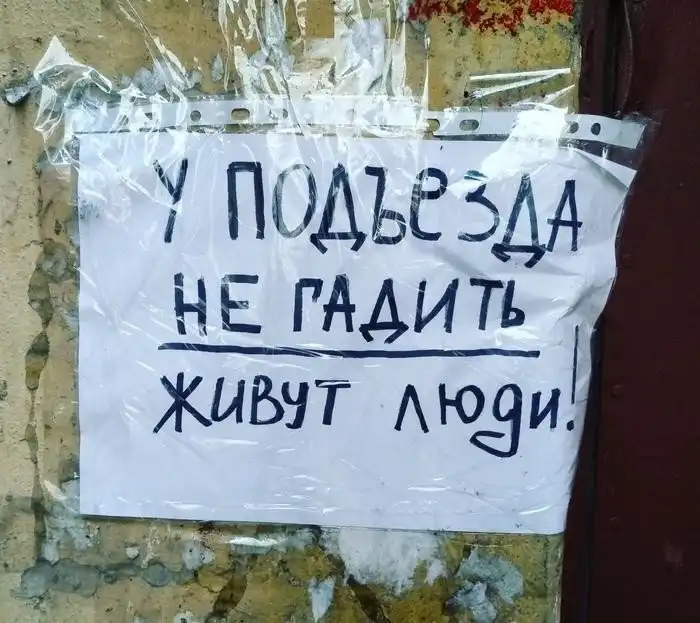 У ПОДЪЕЗДА
НЕ ГАДИТЬ
ЖИВУТ ЛЮДИ!